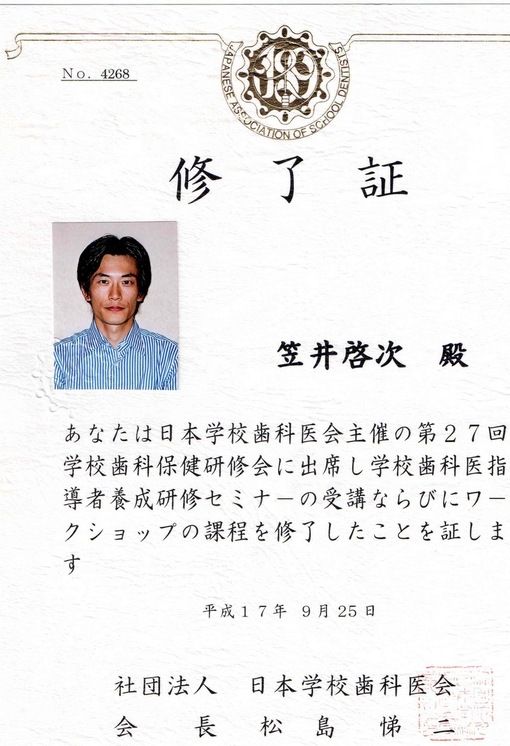 No. 4268
JAPANESE ASSOCIATION OF SCHOOL DENTISTS
修了証
笠井啓次 殿
あなたは日本学校歯科医会主催の第27回
学校歯科保健研修会に出席し学校歯科医指
導者養成研修セミナーの受講ならびにワー
クショップの課程を修了したことを証しま
す
平成17年 9月25日
社団法人 日本学校歯科医会
会長 松島悌二